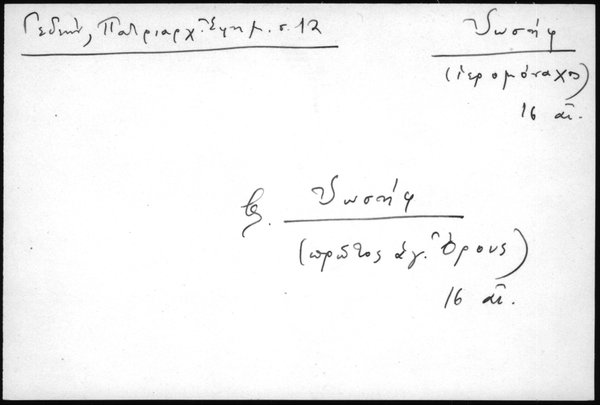 Γεδεών, Πατριαρχ. Ἐφημ. σ. 12
Ἰωσήφ
(ἱερομόναχος)
16 αἰ.
βλ. Ἰωσήφ
(πρῶτος ἁγ. Ὄρους)
16 αἰ.